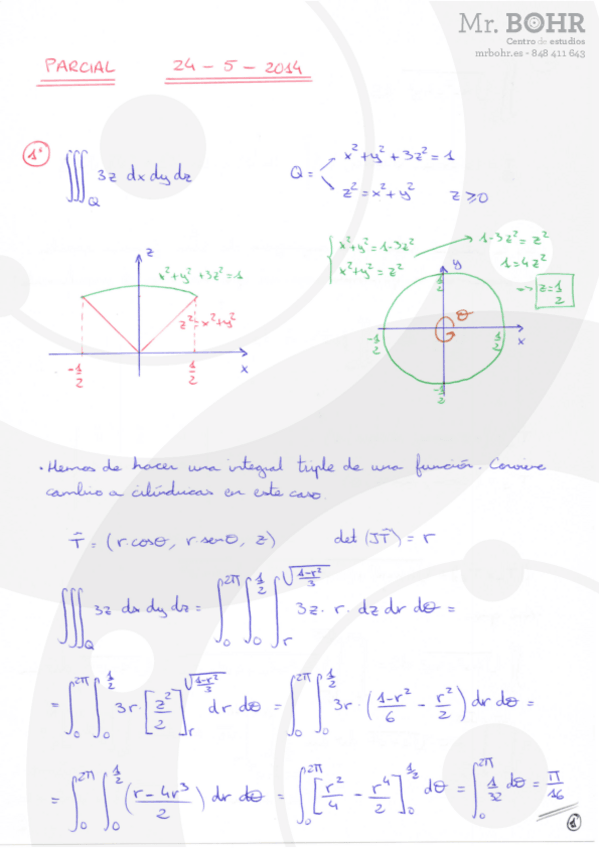 Mr. BOHR
Centro de estudios
mrbohr.es - 848 411 643
PARCIAL 24 - 5 - 2014
1º
∭_Q 3z dx dy dz
Q = x² + y² + 3z² = 1
z² = x² + y² z ≥ 0
x² + y² = 1 - 3z² → 1 - 3z² = z²
x² + y² = z² 1 = 4z²
→ z = 1/2
z
x² + y² + 3z² = 1
z² = x² + y²
-1/2 1/2 x
y
1/2
θ
-1/2 1/2 x
-1/2
• Hemos de hacer una integral triple de una función. Conviene
cambio a cilíndricas en este caso.
T̄ = (r·cosθ, r·senθ, z) det (JT̄) = r
∭_Q 3z dx dy dz = ∫_0^{2π} ∫_0^{1/2} ∫_r^{√((1-r²)/3)} 3z · r · dz dr dθ =
= ∫_0^{2π} ∫_0^{1/2} 3r · [z²/2]_r^{√((1-r²)/3)} dr dθ = ∫_0^{2π} ∫_0^{1/2} 3r · ((1-r²)/6 - r²/2) dr dθ =
= ∫_0^{2π} ∫_0^{1/2} ((r - 4r³)/2) dr dθ = ∫_0^{2π} [r²/4 - r⁴/2]_0^{1/2} dθ = ∫_0^{2π} 1/32 dθ = π/16